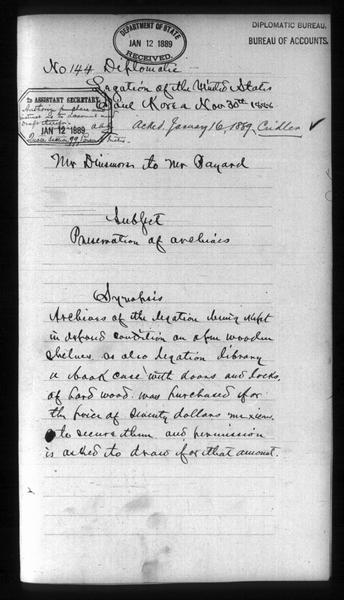 DIPLOMATIC BUREAU.
BUREAU OF ACCOUNTS.
DEPARTMENT OF STATE
JAN 12 1889
RECEIVED.
No 144 Diplomatic
Legation of the United States
Seoul Korea Nov. 30th 1888
Ackd. January 16, 1889. Cridler ✓
2D ASSISTANT SECRETARY
JAN 12 1889
Mr Dinsmore to Mr Bayard
Subject
Preservation of archives
Synopsis
Archives of the legation being kept
in exposed condition on open wooden
shelves. as also legation library
a book case with doors and locks,
of hard wood. was purchased for
the price of seventy dollars mexican.
to secure them and permission
is asked to draw for that amount.